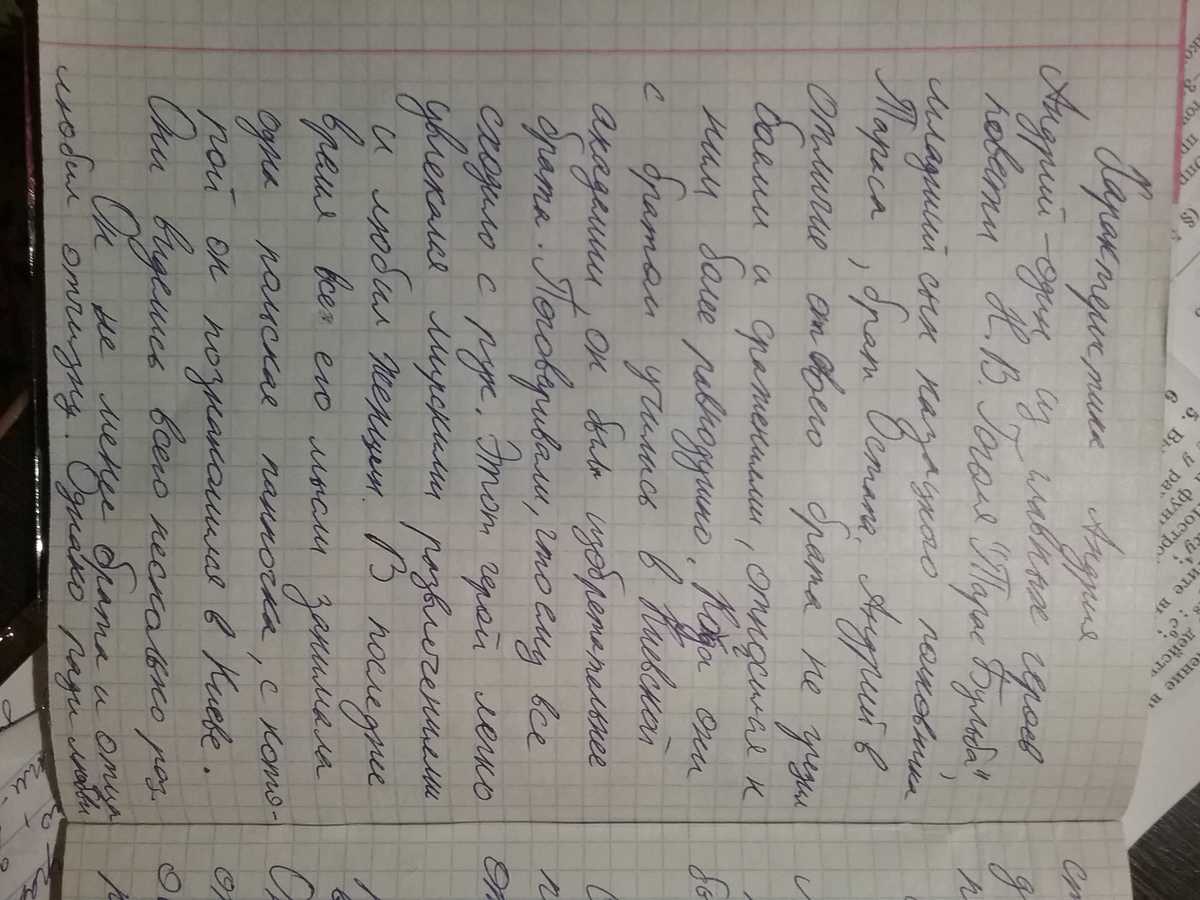 Характеристика Андрия
Андрий - один из главных героев
повести Н.В. Гоголя "Тарас Бульба",
младший сын казацкого полковника
Тараса, брат Остапа. Андрий в
отличие от своего брата не грезил
боями и сражениями, относился к
ним более равнодушно. Когда они
с братом учились в Киевской
академии, он был изобретательнее
брата. Поговаривали, что ему все
сходило с рук. Этот герой легко
увлекался мирскими развлечениями
и любил женщин. В последнее
время все его мысли занимала
одна польская панночка, с кото-
рой он познакомился в Киеве.
Они виделись всего несколько раз.
Он не менее брата и отца
любил отчизну. Однако ради любви